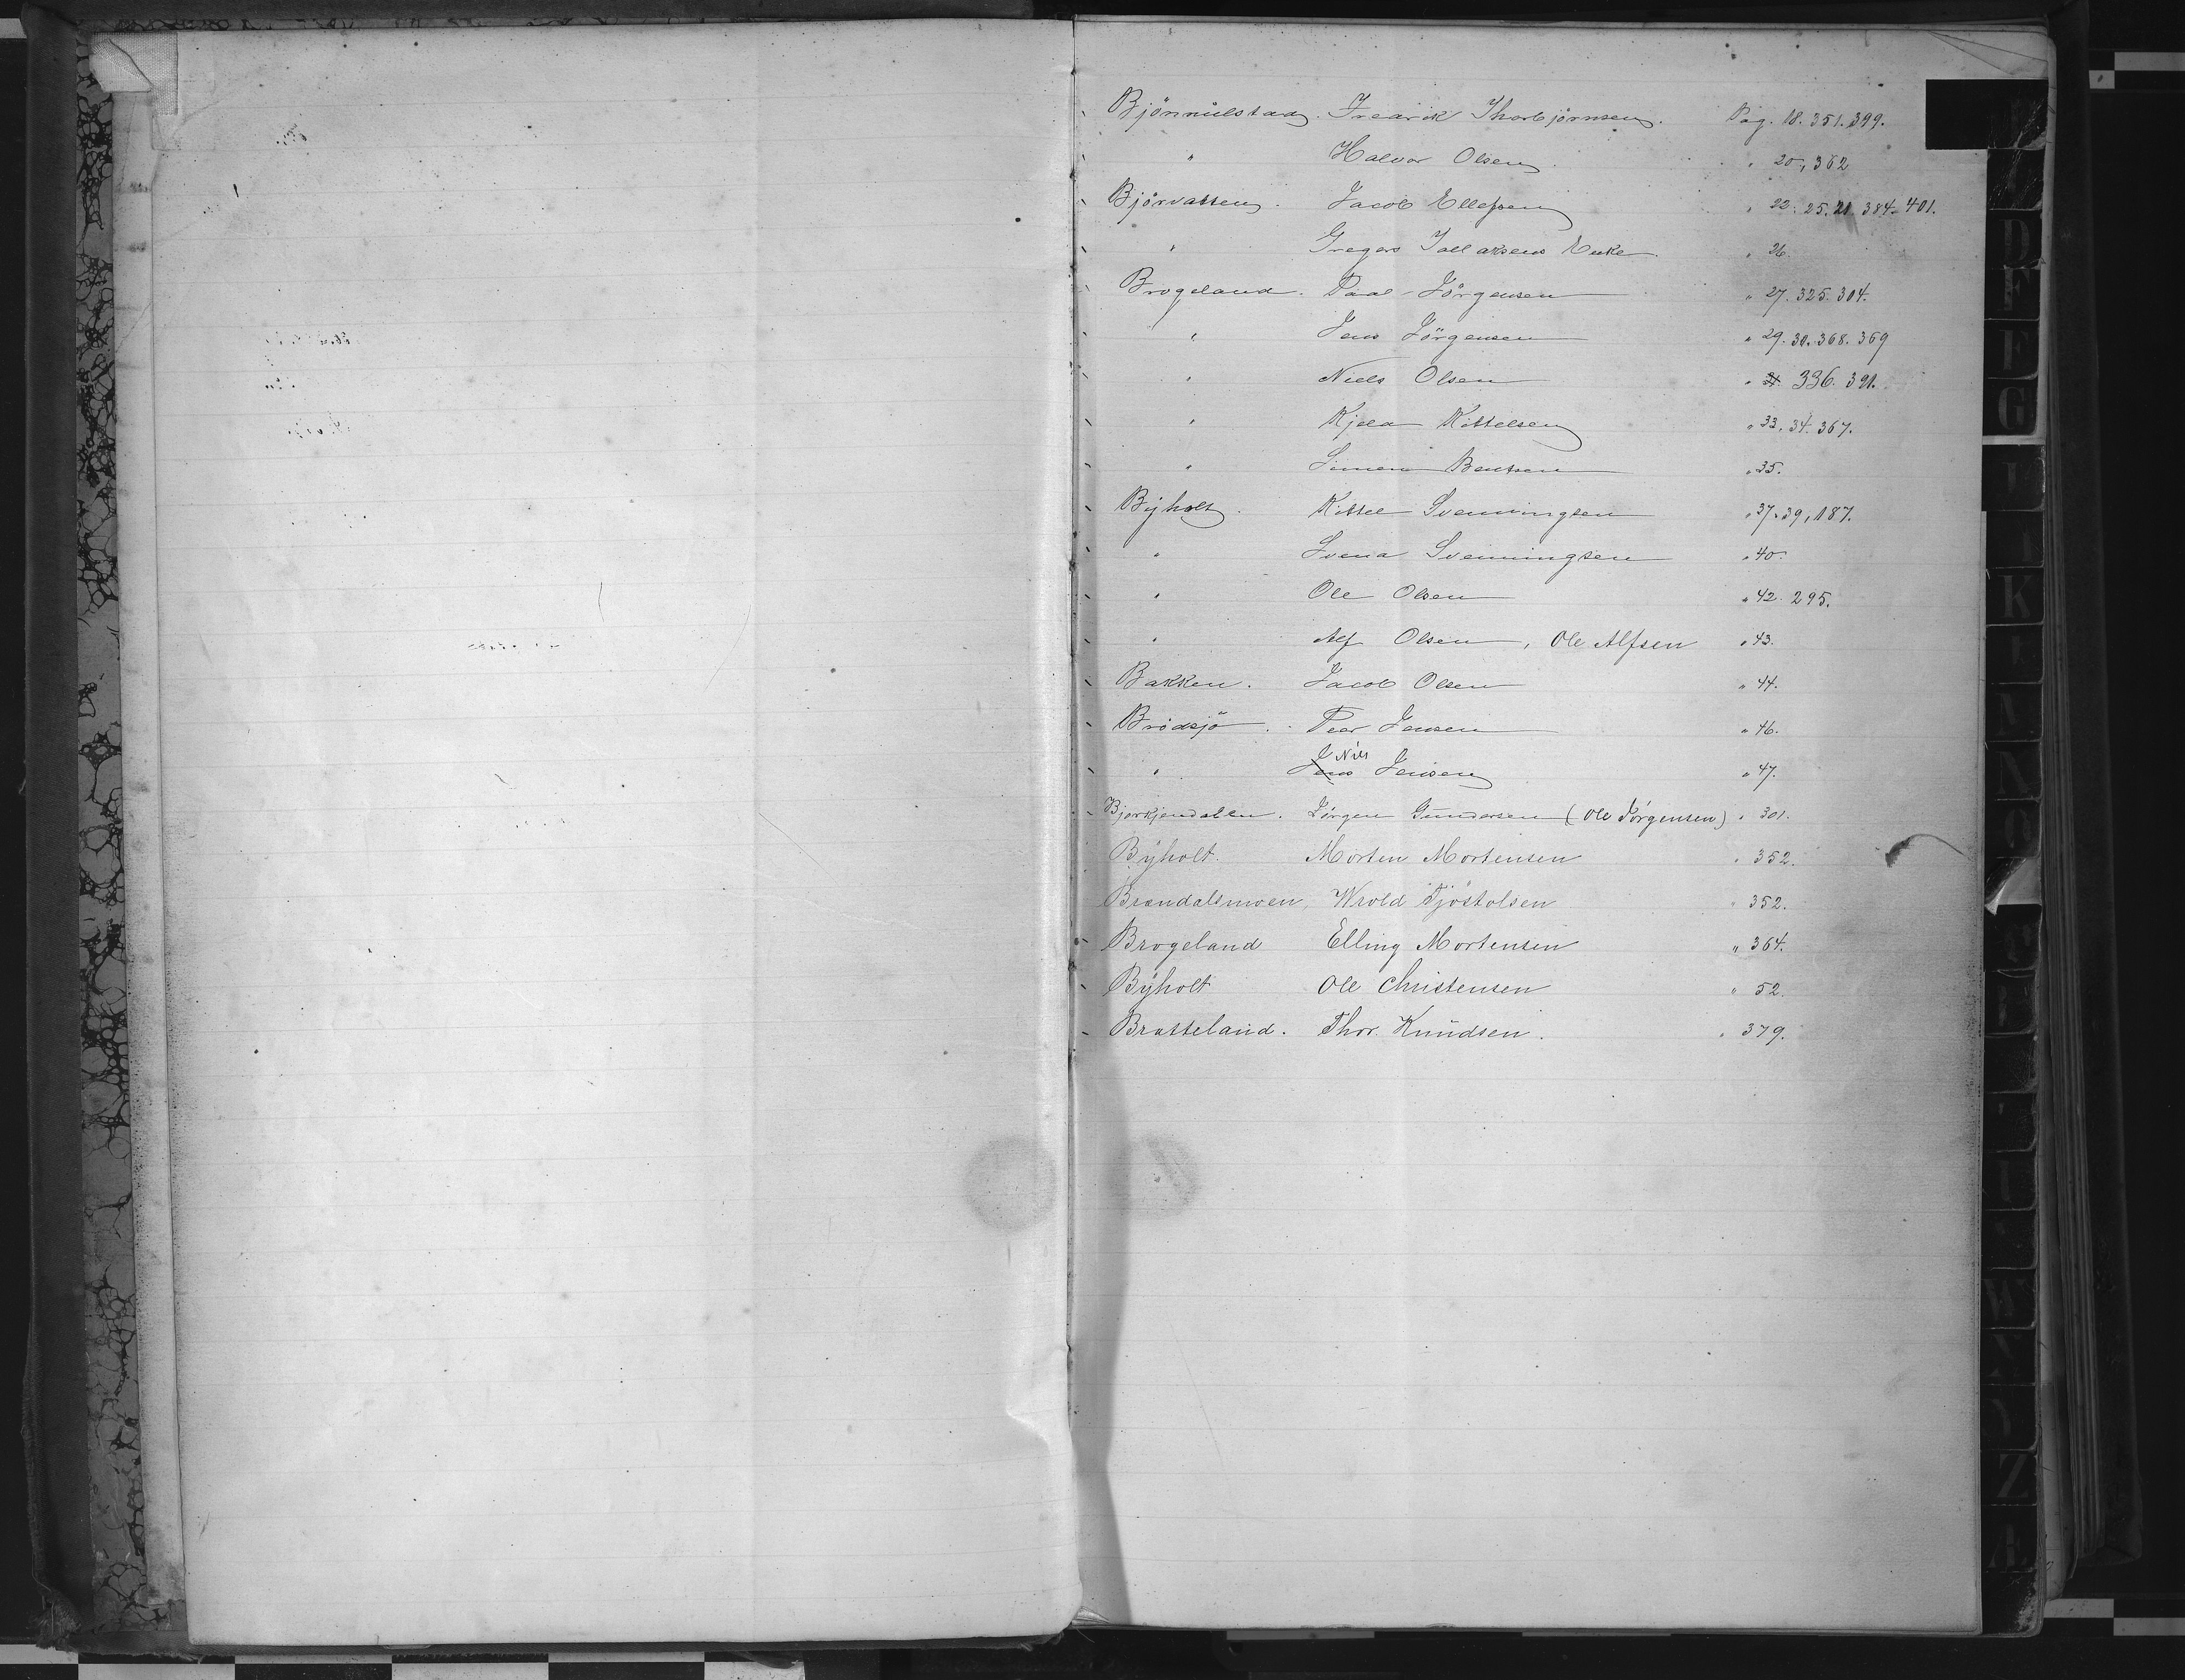 Bjönnulstad. Fredrik Thorbjörnsen. Pag. 18. 351. 399.
" Halvor Olsen " 20, 362
Bjorvatten. Jacob Ellefsen " 22. 25. 21. 384. 401.
" Gregers Tallaksens Enke. " 26.
Brogeland. Paal Jörgensen " 27. 325. 304.
" Jens Jörgensen " 29. 30. 368. 369
" Niels Olsen " 336. 391.
" Kjeld Kittelsen " 33. 34. 367.
" Simon Bentsen " 35.
Byholt. Kittel Svenningsen " 37. 39, 187.
" Svend Svenningsen " 40.
" Ole Olsen " 42. 295.
" Alf Olsen, Ole Alfsen " 43.
Bakken. Jacob Olsen " 44.
Brödsjö. Peer Jensen " 46.
" Jens Nils Jensen " 47.
Bjorkjendalen. Jörgen Gundersen (Ole Jörgensen) " 301.
Byholt. Morten Mortensen " 352.
Brændalsmoen, Wrold Tjöstolsen " 352.
Brogeland Elling Mortensen " 364.
Byholt Ole Christensen " 52.
Bratteland. Thor. Knudsen. " 379.
D
E
F
G
I
K
Z
Æ